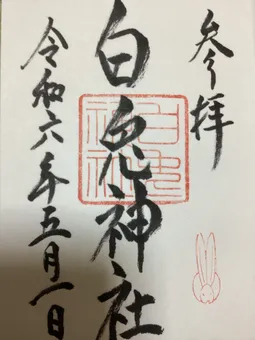 参拝
白兎神社
令和六年五月一日
白兎神社